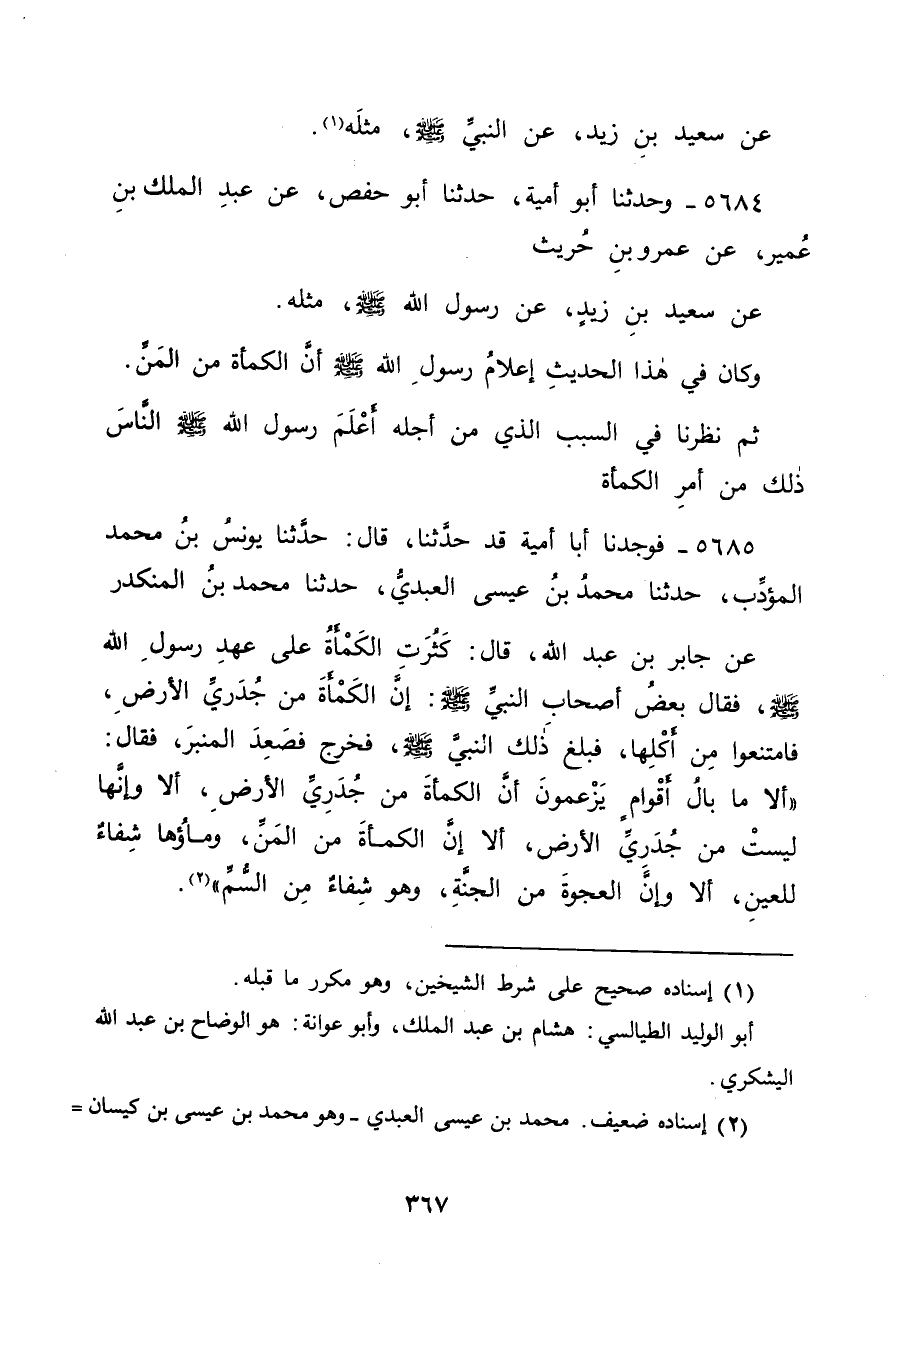 عن سعيد بنِ زيد، عن النبيِّ ﷺ، مثلَه(١).
٥٦٨٤ ـ وحدثنا أبو أمية، حدثنا أبو حفص، عن عبدِ الملك بنِ
عُمير، عن عمرو بنِ حُريث
عن سعيد بنِ زيدٍ، عن رسول الله ﷺ، مثله.
وكان في هٰذا الحديثِ إعلامُ رسولِ الله ﷺ أنَّ الكمأة من المَنِّ.
ثم نظرنا في السبب الذي من أجله أَعْلَمَ رسول الله ﷺ النَّاسَ
ذٰلك من أمرِ الكمأة
٥٦٨٥ ـ فوجدنا أبا أمية قد حدَّثنا، قال: حدَّثنا يونسُ بنُ محمد
المؤدِّب، حدثنا محمدُ بنُ عيسى العبديُّ، حدثنا محمد بنُ المنكدر
عن جابر بن عبد الله، قال: كَثُرَتِ الكَمْأَةُ على عهدِ رسولِ الله
ﷺ، فقال بعضُ أصحابِ النبيِّ ﷺ: إنَّ الكَمْأَةَ من جُدَريِّ الأرضِ،
فامتنعوا مِن أَكْلِها، فبلغ ذٰلك النبيَّ ﷺ، فخرج فصَعِدَ المنبرَ، فقال:
«ألا ما بالُ أَقْوامٍ يَزْعمونَ أنَّ الكمأةَ من جُدَرِيِّ الأرضِ، ألا وإنَّها
ليستْ من جُدَريِّ الأرض، ألا إنَّ الكمـأةَ من المَنِّ، ومـاؤُها شِفاءٌ
للعينِ، ألا وإنَّ العجوةَ من الجنَّةِ، وهو شِفاءٌ مِن السُّمِّ»(٢).
(١) إسناده صحيح على شرط الشيخين، وهو مكرر ما قبله.
أبو الوليد الطيالسي: هشام بن عبد الملك، وأبو عوانة: هو الوضاح بن عبد الله
اليشكري.
(٢) إسناده ضعيف. محمد بن عيسى العبدي ـ وهو محمد بن عيسى بن كيسان =
٣٦٧